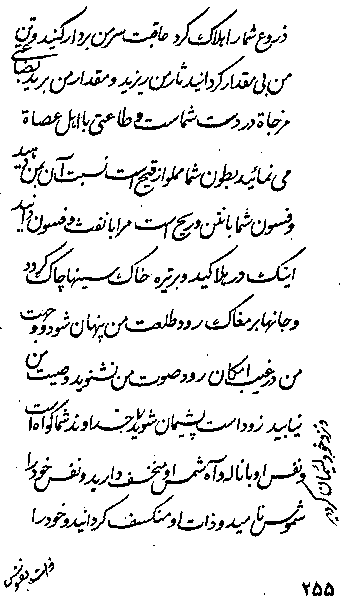 ذروع شما را هلاک کرد عاقبت سر من بر دار کنید و تن
من بی مقدار گردانید ثار من بریزید و مقدار من ببرید بضاعتی
مزجاة در دست شماست و طاعتی با اهل عصاة
می نمائید بطون شما مملو از قیح است نسبت آن بمن دهید
و فسون شما با نتن و ریح است مرا با نفث و فسون دانید
اینک در هلاکید و بر تیره خاک سینها چاک گردد
و جانها بر مغاک رود طلعت من پنهان شود و وجهت
من در غیب امکان رود صوت من نشنوید و صیت من
نیابید زود است پشیمان شوید خداوند شما گواه است
و نفس او با ناله و آه شمس او منخسف دارید و نفس خود را
شموس نامید و ذات او منکسف گردانید و خود را
ذات نفوس
۲۵۵